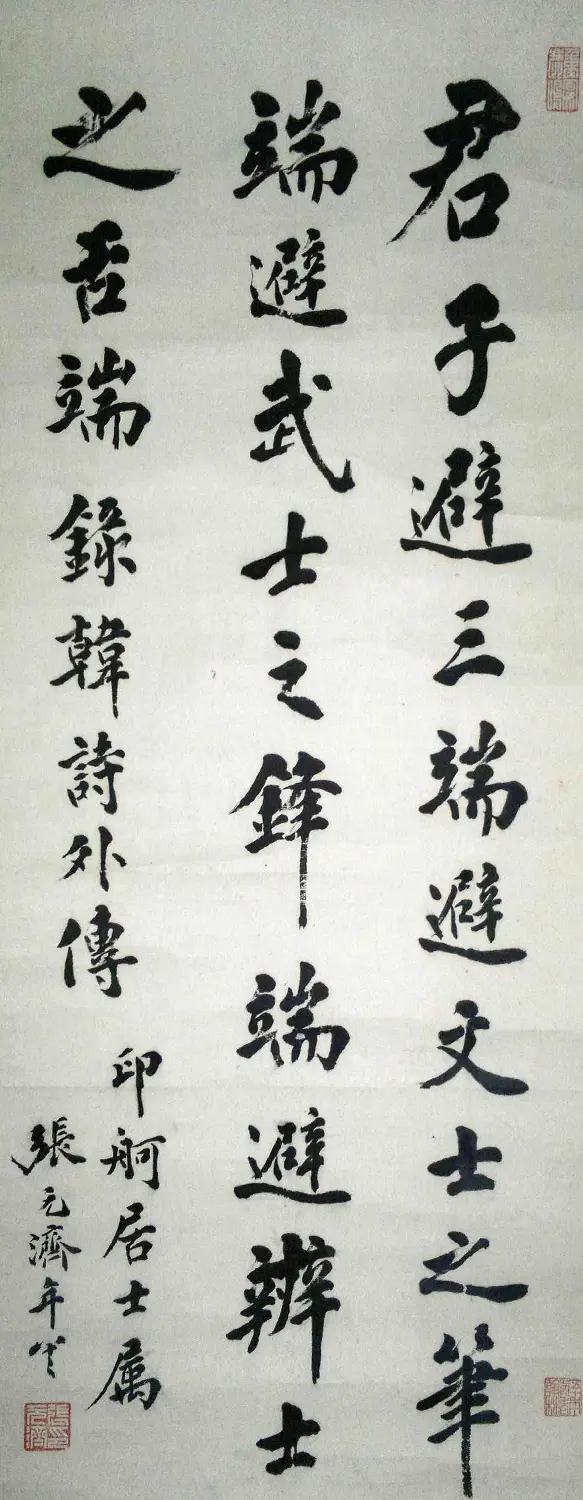 君子避三端避文士之筆
端避武士之鋒端避辨士
之舌端錄韓詩外傳
印舸居士属
張元濟年